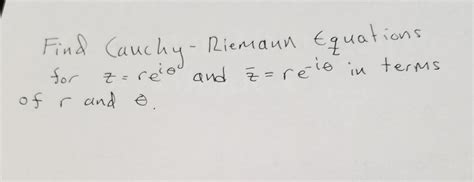 Find Cauchy-Riemann Equations
for z = re^{iθ} and z̄ = re^{-iθ} in terms
of r and θ.